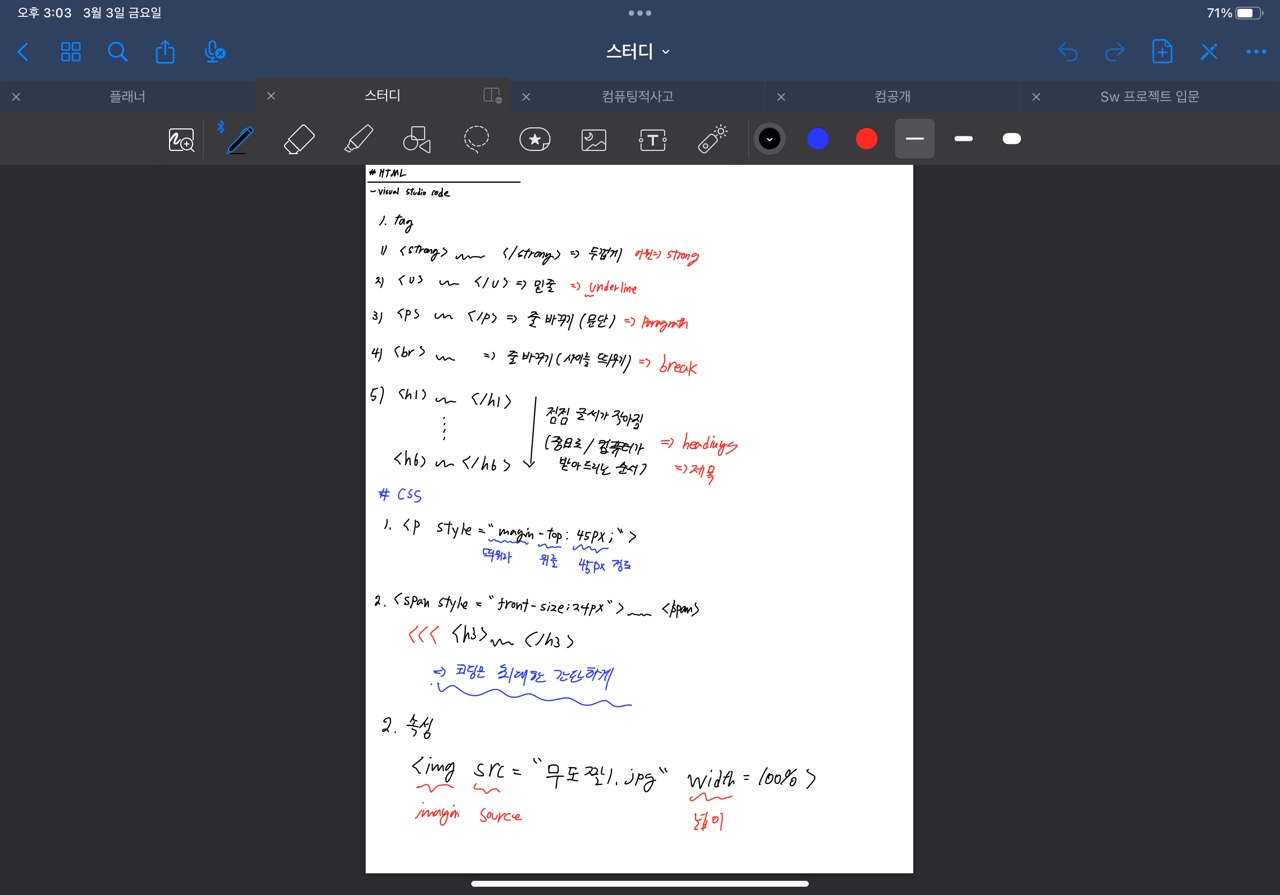 오후 3:03 3월 3일 금요일
71%
스터디
플래너
스터디
컴퓨팅적사고
컴공개
Sw 프로젝트 입문
# HTML
- visual studio code
1. tag
1) <strong> </strong> => 두껍게 어원=> strong
2) <u> </u> => 밑줄 => underline
3) <p> </p> => 줄 바꾸기 (문단) => Paragraph
4) <br> => 줄 바꾸기 (사이늘 띄우기) => break
5) <h1> </h1>
점점 글씨가 작아짐
(중요로 / 컴퓨터가 => headings
<h6> </h6> 받아드리는 순서) => 제목
# CSS
1. <p style="magin-top: 45px;">
띄워라 위로 45px 정도
2. <span style = "front-size:24px"> <span>
<<< <h3> </h3>
=> 코딩은 최대한 간단하게
2. 속성
<img src = "무도짠1.jpg" width = 100%>
imagin source 넓이